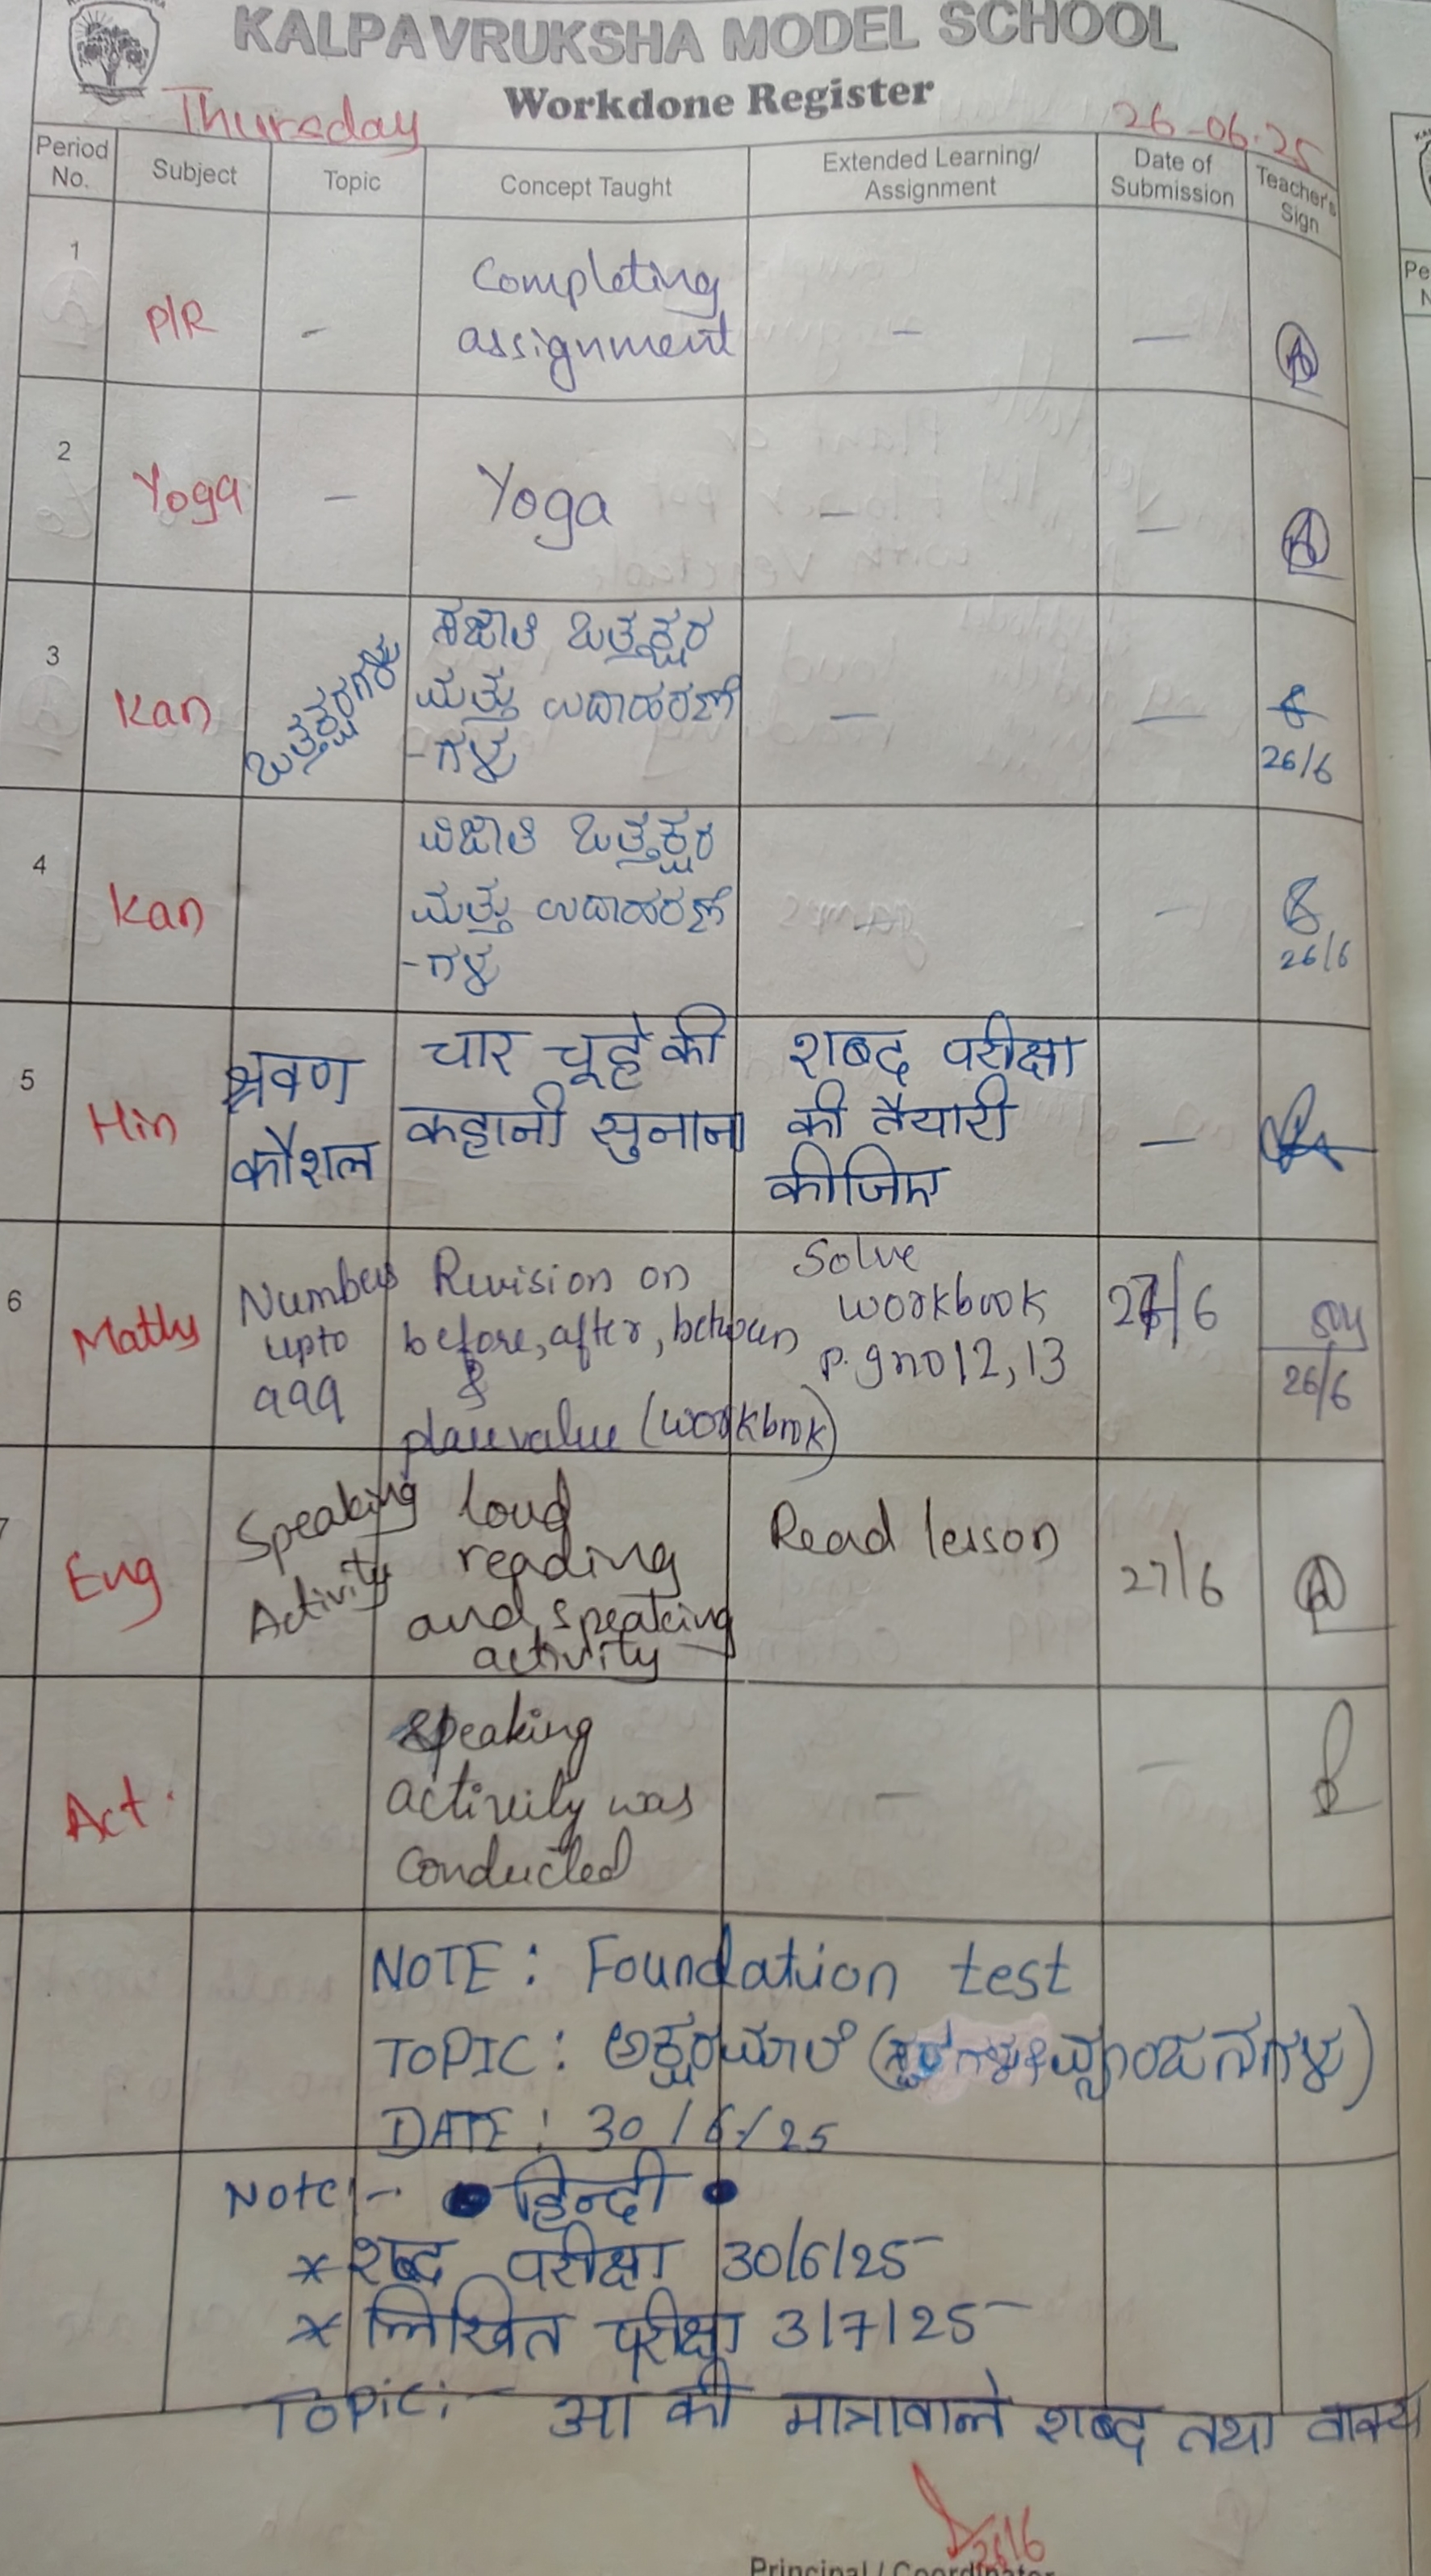 KALPAVRUKSHA MODEL SCHOOL
Workdone Register
Thursday 26-06-25
Period No. Subject Topic Concept Taught Extended Learning/ Assignment Date of Submission Teacher's Sign
1 P/R - Completing assignment - -
2 Yoga - Yoga - -
3 Kan ಒತ್ತಕ್ಷರಗಳು ಸಜಾತಿ ಒತ್ತಕ್ಷರ ಮತ್ತು ಉದಾಹರಣೆ -ಗಳು - - 26/6
4 Kan ವಿಜಾತಿ ಒತ್ತಕ್ಷರ ಮತ್ತು ಉದಾಹರಣೆ -ಗಳು - 26/6
5 Hin श्रवण कौशल चार चूहे की कहानी सुनाना शब्द परीक्षा की तैयारी कीजिए -
6 Maths Numbers upto 999 Revision on before, after, between & place value (workbook) Solve workbook p.g no 12, 13 27/6 26/6
7 Eng Speaking Activity loud reading and speaking activity Read lesson 27/6
Act. Speaking activity was conducted - -
NOTE: Foundation test
TOPIC: ಅಕ್ಷರಮಾಲೆ (ಸ್ವರಗಳು & ವ್ಯಂಜನಗಳು)
DATE: 30/6/25
Note:- हिन्दी
* शब्द परीक्षा 30/6/25
* लिखित परीक्षा 3/7/25
Topic:- आ की मात्रावाले शब्द तथा वाक्य
26/6
Principal / Coordinator